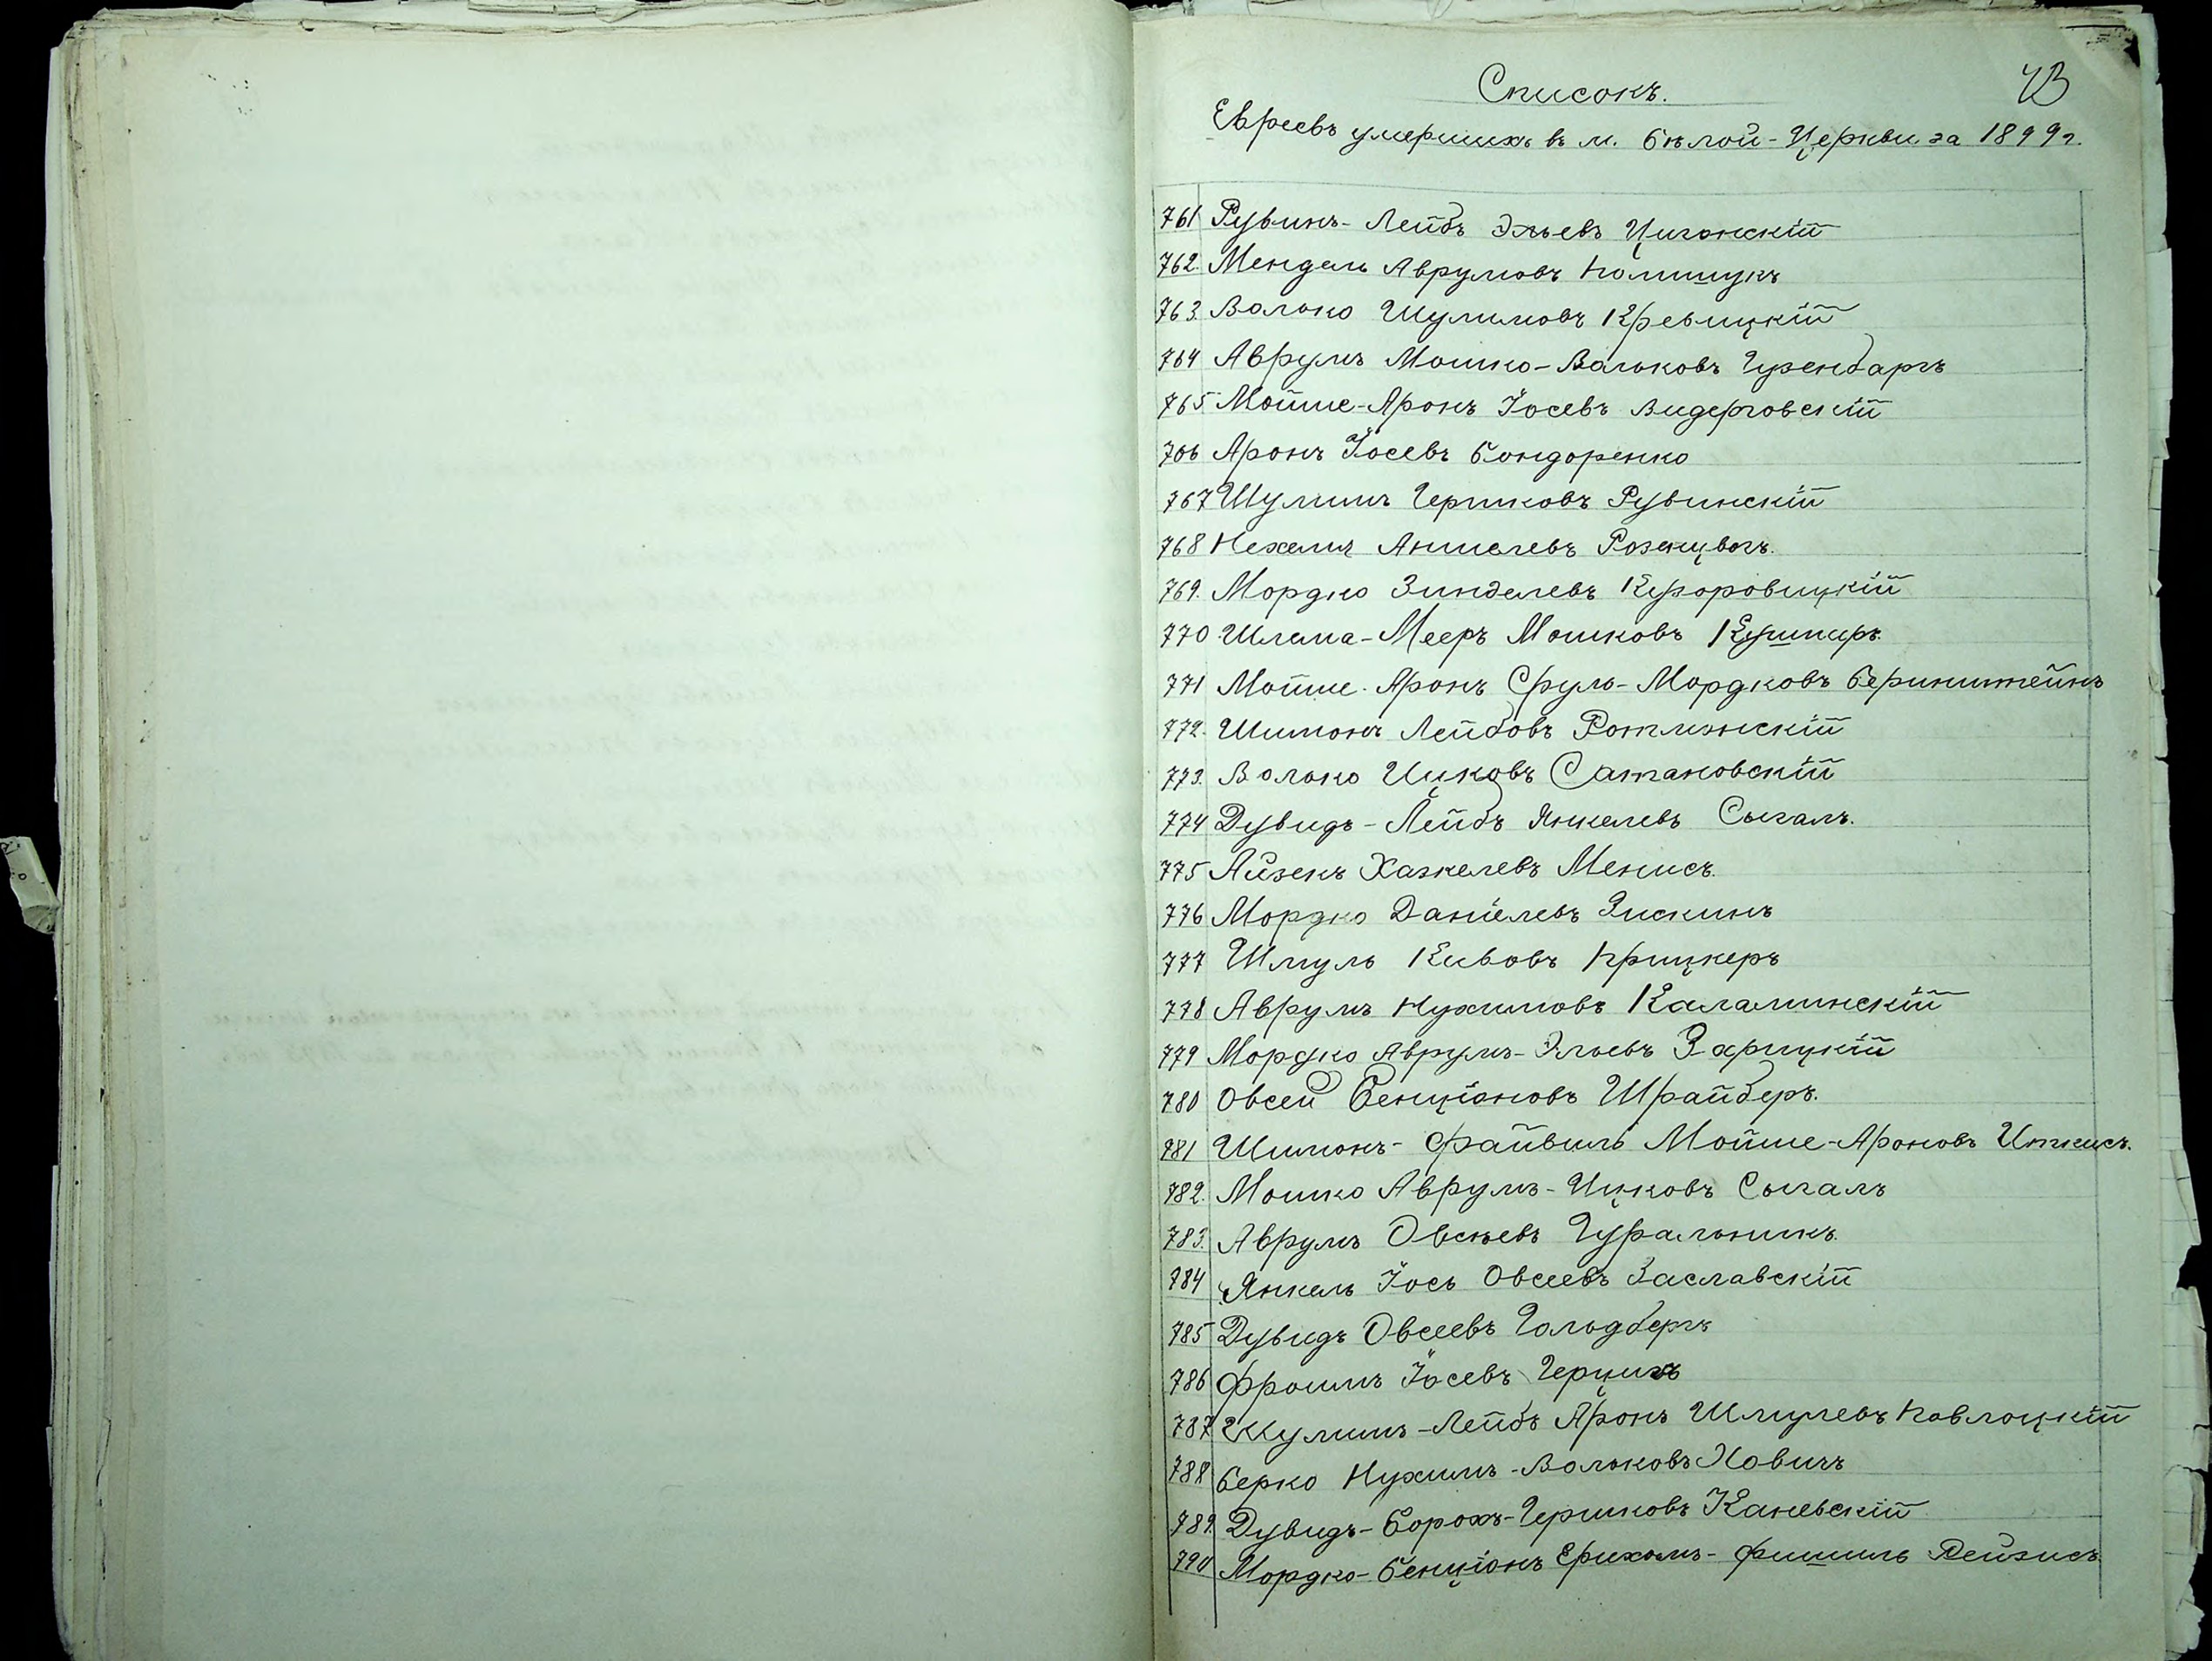 43
Списокъ.
Евреевъ умершихъ въ м. Бѣлой-Церкви за 1899 г.
761 Рувинъ-Лейбъ Эльевъ Циганскій
762. Мендель Аврумовъ Полищукъ
763. Волько Шулимовъ Кревицкій
764 Аврумъ Мошко-Вольковъ Гузенбаргъ
765 Мойше-Аронъ Іосевъ Видерговскій
766 Аронъ Іосевъ Бондоренко
767 Шулимъ Гершковъ Рувинскій
768 Нехемъ Аншелевъ Розенцвогъ.
769. Мордко Зинделевъ
770 Шлема-Мееръ Мошковъ Кушниръ.
771 Мойше-Аронъ Сруль-Мордковъ Беринштейнъ
772. Шимонъ Лейбовъ Ротманскій
773. Волько Ицковъ Сатановскій
774 Дувидъ-Лейбъ Янкелевъ Сыгалъ.
775 Айзекъ Хазкелевъ Менисъ.
776 Мордко Даніелевъ Зискинъ
777 Шмуль Кивовъ Прицкеръ
778 Аврумъ Нухимовъ Каламинскій
779 Мордко Аврумъ-Эльевъ Зарицкій
780 Овсей Бенціоновъ Шрайберъ.
781 Шимонъ-Файвиль Мойше-Ароновъ Иткисъ.
782. Мошко Аврумъ-Ицковъ Сыгалъ
783. Аврумъ Овсѣевъ Гуральникъ.
784 Янкель Іось Овсеевъ Заславскій
785 Дувидъ Овсеевъ Гольдбергъ
786 Фроимъ Іосевъ
787 Шулимъ-Лейбъ Аронъ Шмулевъ Повлоцкій
788 Берко Нухимъ-Вольковъ Ховичъ
789. Дувидъ-Борохъ-Гершковъ Каневскій
790 Мордко-Бенціонъ Ерихомъ-Фишиль Рейзисъ.